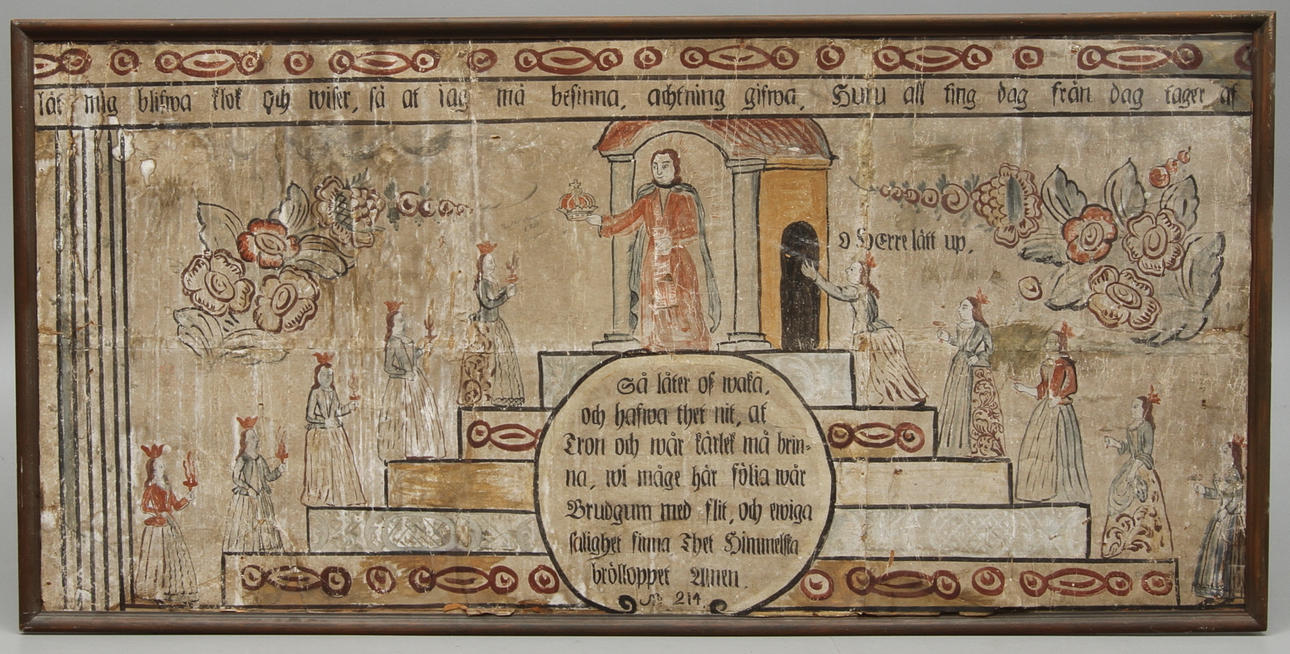 låt mig blifwa klok Och wiser, så at iag må besinna, achtning gifwa, Huru all ting dag från dag tager af
O HErre lått up,
Så låter oß waka,
och hafwa thet nit, at
Tron och wår kärlek må brin-
na, wi måge här fölia wår
Brudgum med flit, och ewiga
salighet finna Thet Himmelska
brölloppet Amen.
No 214